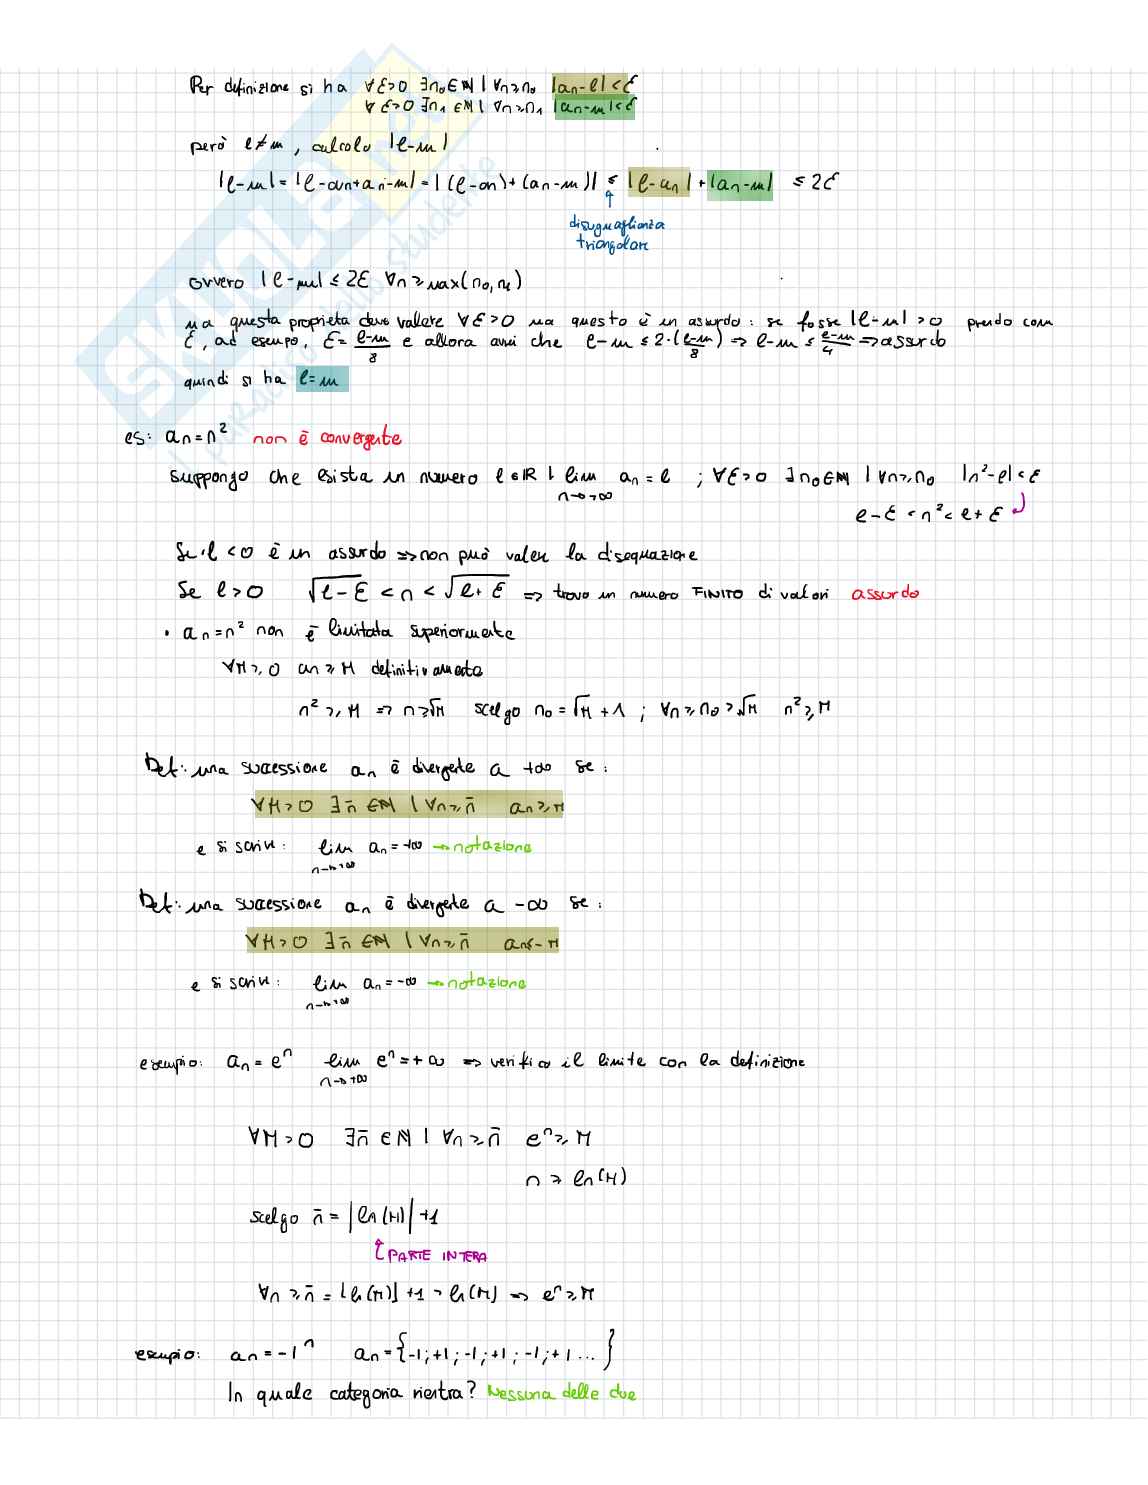 Per definizione si ha ∀ε>0 ∃n₀∈ℕ | ∀n≥n₀ |aₙ-l|<ε
∀ε>0 ∃n₁∈ℕ | ∀n≥n₁ |aₙ-m|<ε
però l≠m, calcolo |l-m|
|l-m|=|l-aₙ+aₙ-m|=|(l-aₙ)+(aₙ-m)| ≤ |l-aₙ|+|aₙ-m| ≤ 2ε
↑
disuguaglianza
triangolare
ovvero |l-m| ≤ 2ε ∀n≥max(n₀,n₁)
ma questa proprietà deve valere ∀ε>0 ma questo è un assurdo: se fosse |l-m|>0 prendo come
ε, ad esempio, ε= (l-m)/8 e allora avrei che l-m ≤ 2·((l-m)/8) ⇒ l-m ≤ (l-m)/4 ⇒ assurdo
quindi si ha l=m
es: aₙ=n² non è convergente
Suppongo che esista un numero l∈ℝ | lim aₙ=l ; ∀ε>0 ∃n₀∈ℕ | ∀n≥n₀ |n²-l|<ε
n→+∞
l-ε<n²<l+ε
Se l<0 è un assurdo ⇒ non può valere la disequazione
Se l>0 √(l-ε) < n < √(l+ε) ⇒ trovo un numero FINITO di valori assurdo
• aₙ=n² non è limitata superiormente
∀M≥0 aₙ≥M definitivamente
n²≥M ⇒ n≥√M scelgo n₀=√M+1 ; ∀n≥n₀>√M n²≥M
Def: una successione aₙ è divergente a +∞ se:
∀M>0 ∃n̄∈ℕ | ∀n≥n̄ aₙ≥M
e si scrive: lim aₙ=+∞ → notazione
n→+∞
Def: una successione aₙ è divergente a -∞ se:
∀M>0 ∃n̄∈ℕ | ∀n≥n̄ aₙ≤-M
e si scrive: lim aₙ=-∞ → notazione
n→+∞
esempio: aₙ=eⁿ lim eⁿ=+∞ ⇒ verifico il limite con la definizione
n→+∞
∀M>0 ∃n̄∈ℕ | ∀n≥n̄ eⁿ≥M
n≥ln(M)
scelgo n̄=|ln(M)|+1
↑ PARTE INTERA
∀n≥n̄=⌊ln(M)⌋+1>ln(M) ⇒ eⁿ≥M
esempio: aₙ=-1ⁿ aₙ={-1;+1;-1;+1;-1;+1...}
In quale categoria rientra? Nessuna delle due
SKUOLA.net
il paradiso dello studente